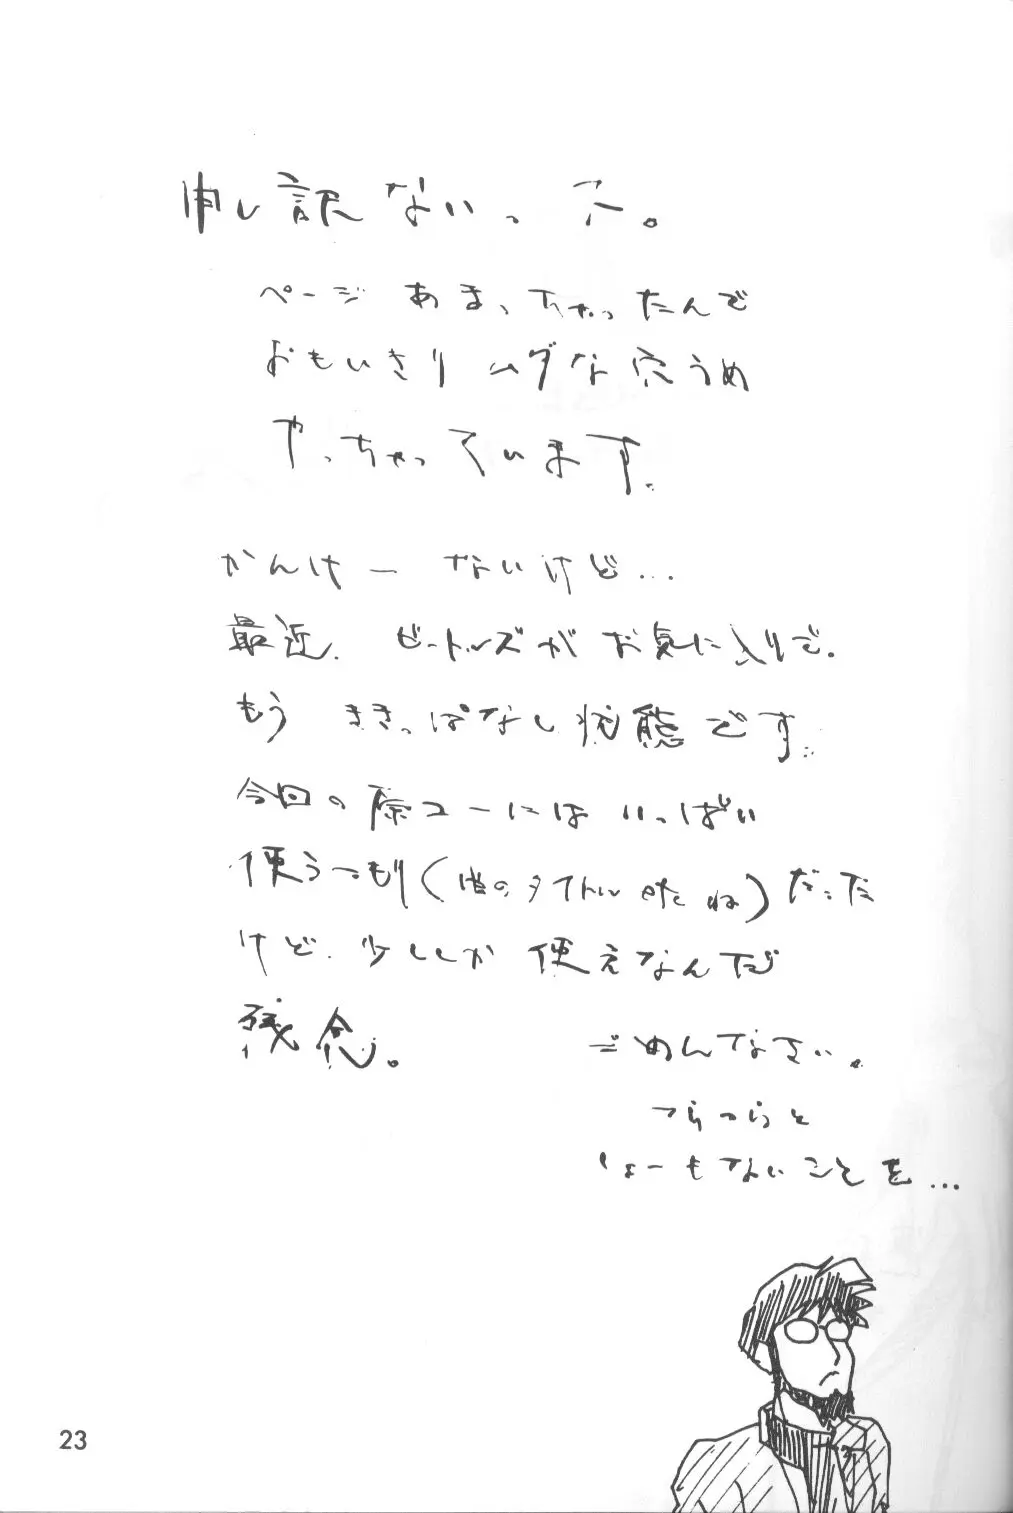 申し訳ないっス。
ページあまっちゃったんで
おもいきりムダな穴うめ
やっちゃっています。
かんけーないけど…
最近、ビートルズがお気に入りで。
もうききっぱなし状態です。
今回の原コーにはいっぱい
使うつもり(曲のタイトルetcね)だった
けど、少ししか使えなんだ
残念。
ごめんなさい。
つらつらと
しょーもないことを…
23